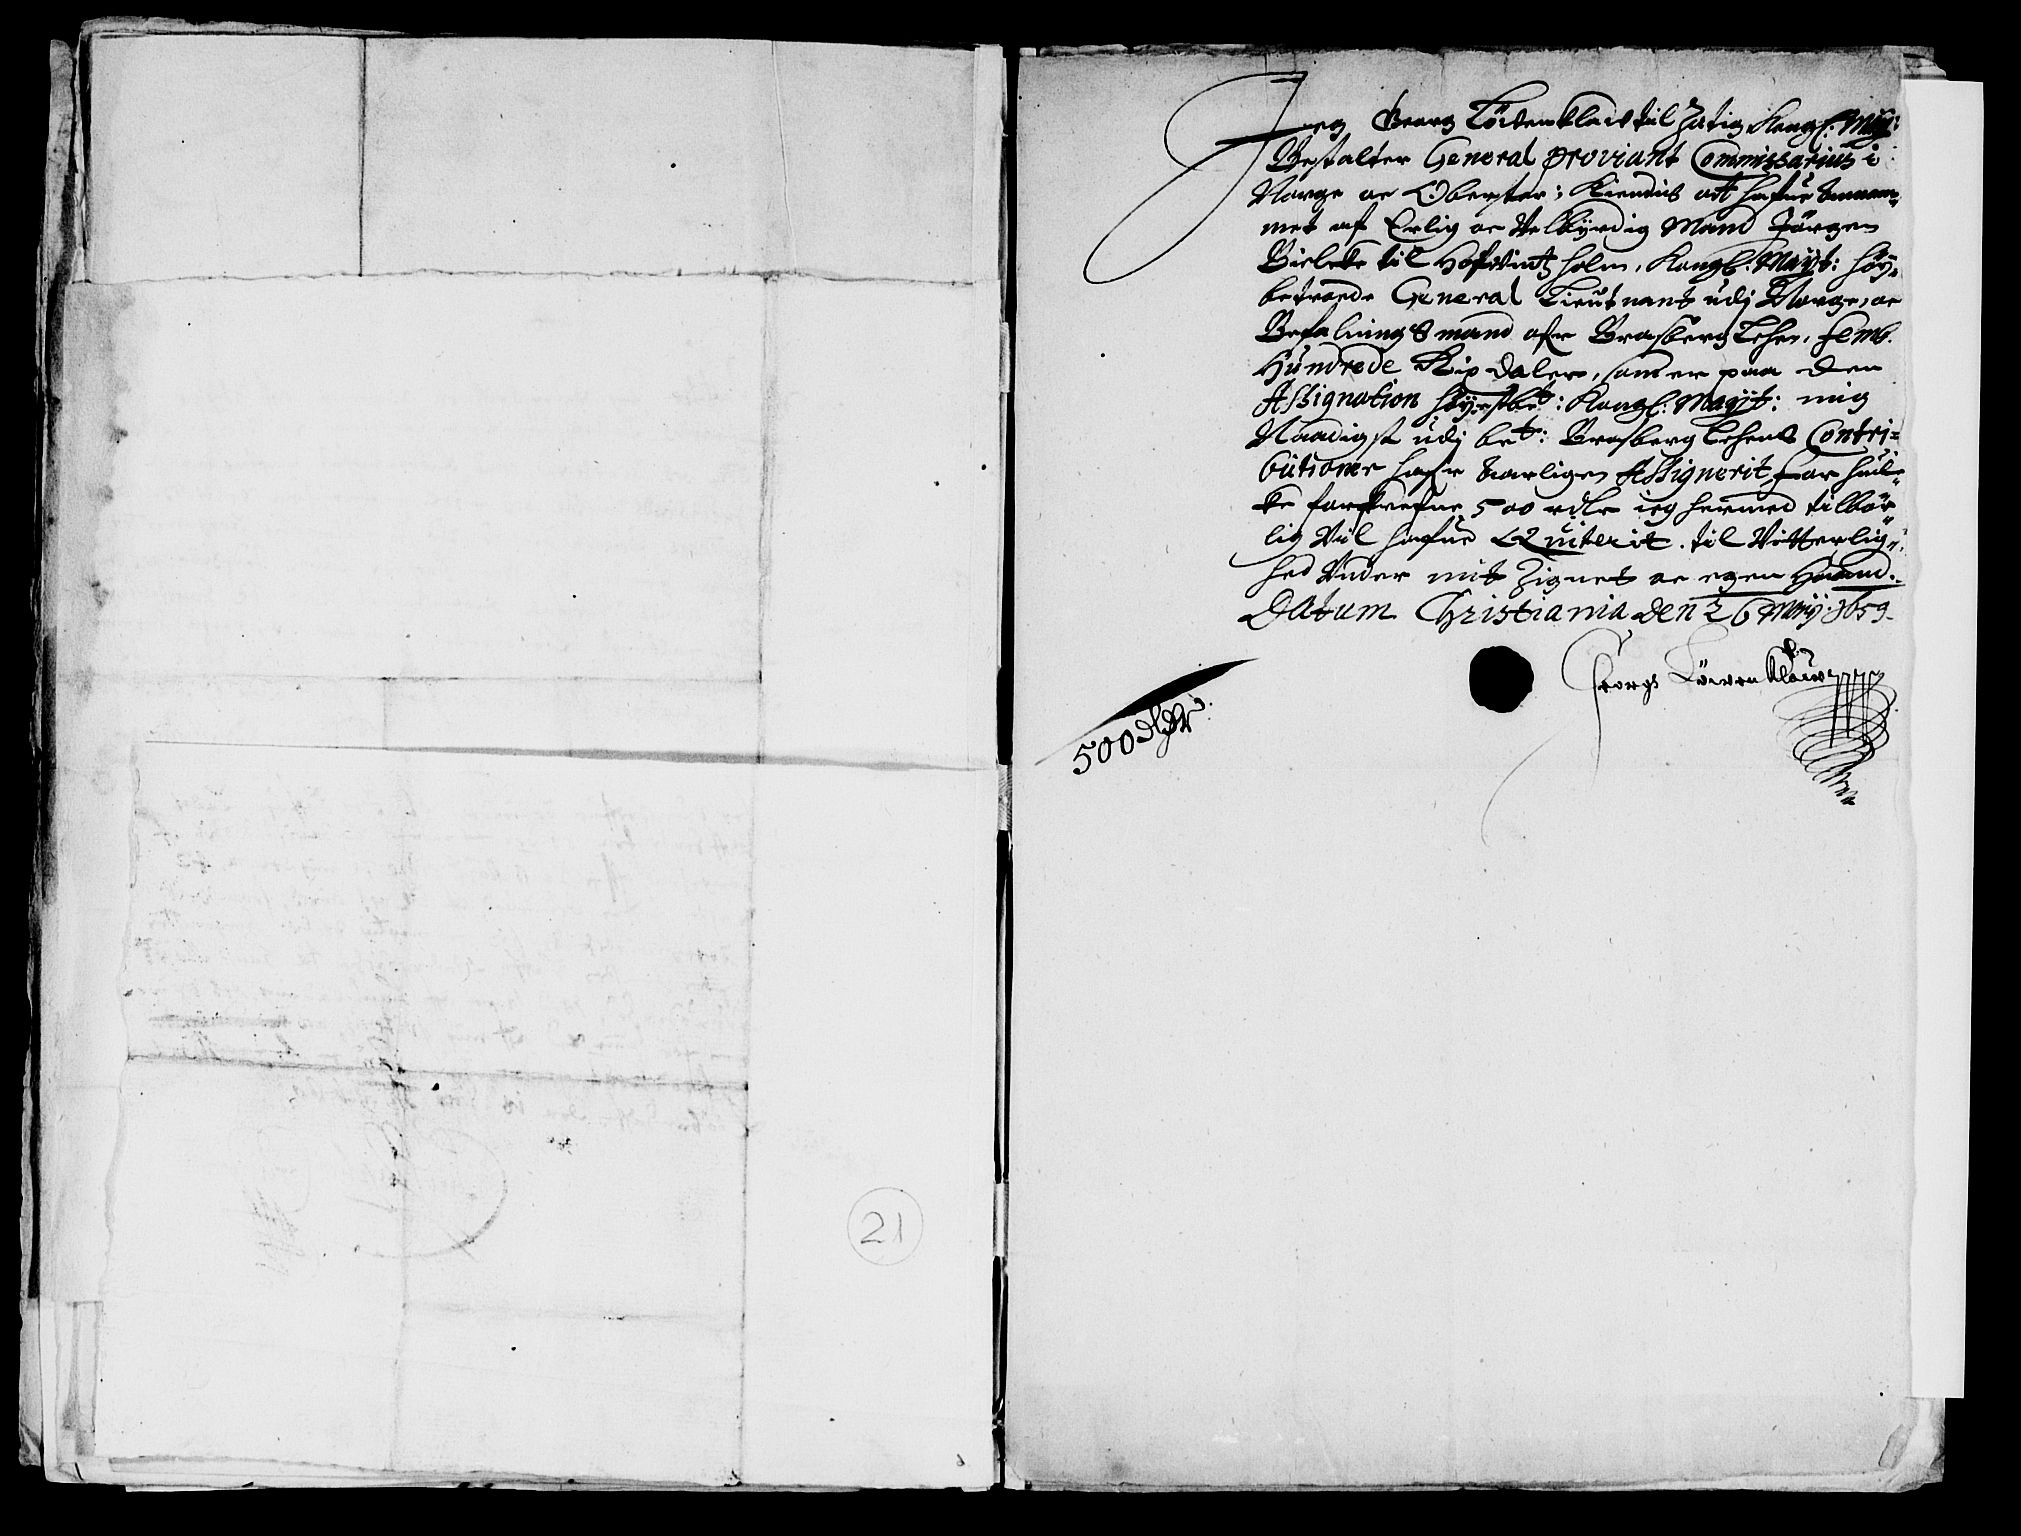 21
Jeg Georg Löwenklaw til Hatig Kongl: May:
Bestalter General proviant Commissarius i
Norge oc Oberster; Kiendis att hafue Annam-
met af Erlig oc Velbÿrdig Mand Jörgen
Bielcke til Hofwintzholm, Kongl: Mayt: höy-
betroede General Lieutnant udj Norge, oc
Befalnings mand ofr Brasberg Lehn, femb
Hundrede Rix daler, som er paa den
Assignation höystbet: Kongl: Mayt: mig
Naadigst udj bet: Brasberg Lehens Contri-
butioner hafr Aarligen Assignerit, for huil-
ke forskrefne 500 rdlr ieg hermed tilbör-
lig Vil hafue Quiterit. til Vitterlig-
hed Under mit Zignet oc egen Haand.
Datum Christiania den 26 Maij: 1659.
Georg Löwenklaw
500 dlr